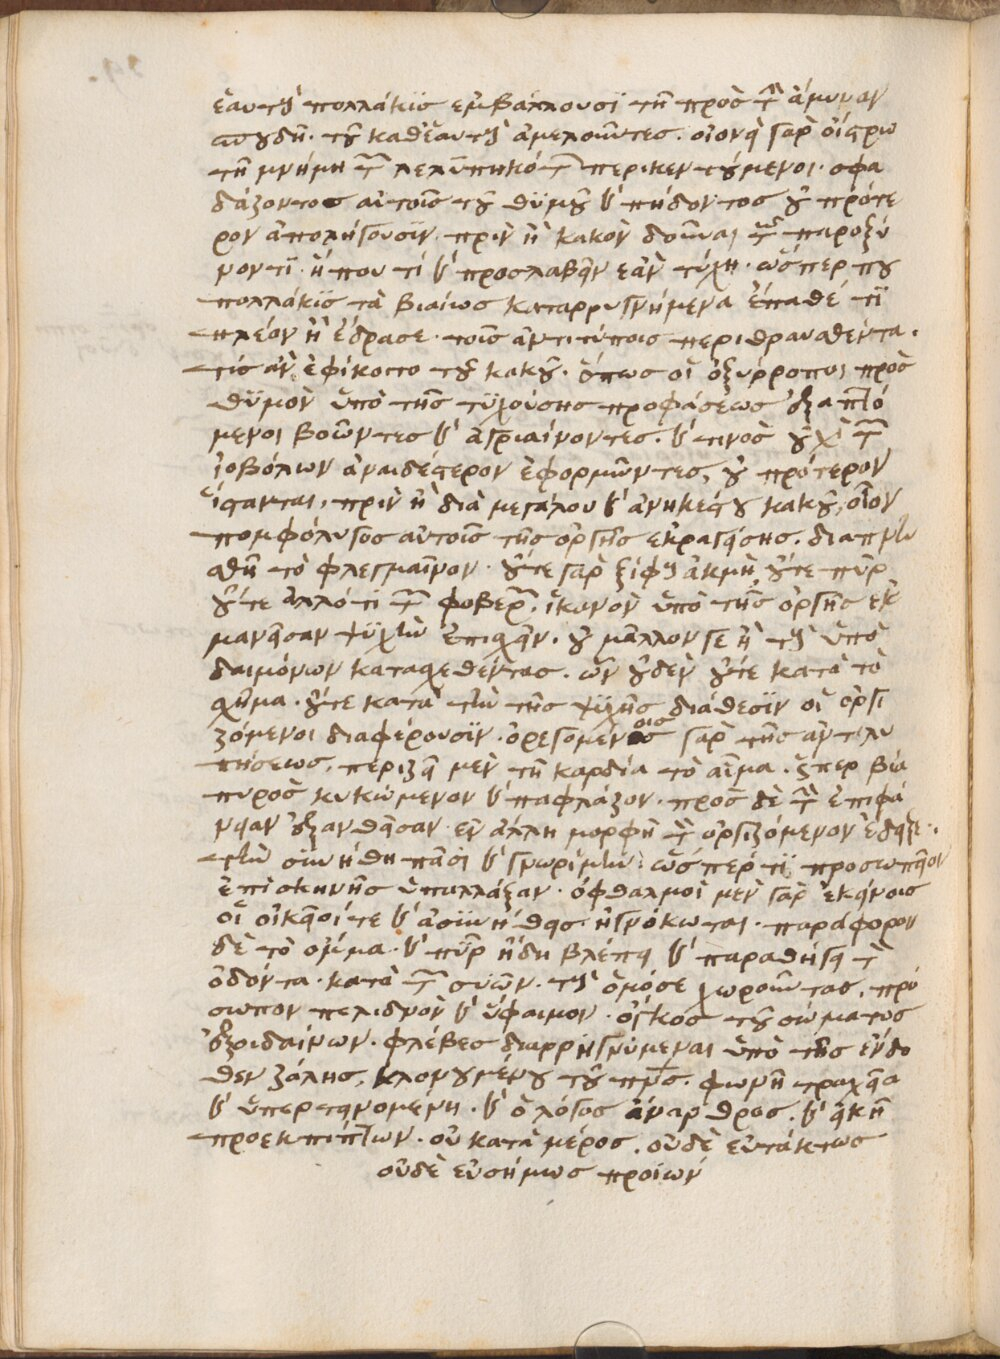 ἑαυτοὺς πολλάκϊς ἐμβάλλουσϊ τῆ πρὸς τὴν ἄμυναν
σπουδῆ· τοῦ καθεαυτοὺς ἀμελοῦντες. οἱονεὶ γὰρ οἴστρω
τῆ μνήμη τῶν λελυπηκότων περικεντούμενοι· σφα
δάζοντος αὐτοῖς τοῦ θυμοῦ καὶ πηδόντος οὐ πρότε
ρον ἀπολήγουσϊν· πρὶν ἢ κακὸν δοῦναι τῶ παροξύ
νοντϊ· ἤ που τί καὶ προσλαβεῖν ἐὰν τύχη· ὥσπερ που
πολλάκϊς τὰ βιαίως καταρρυγνήμενα ἔπαθέ τϊ
πλέον ἢ ἔδρασε· τοῖς ἀντιτύποις περιθραυσθέντα.
τίς ἂν ἐφίκοιτο τοῦ κακοῦ· ὅπως οἱ ὀξύρροποι πρὸς
θϋμὸν ὑπὸ τῆς τϋχούσης προφάσεως ἐξαπτό
μενοι βοῶντες καὶ ἀγριαίνοντες· καὶ τινὸς οὐχὶ τῶν
ἰοβόλων ἀναιδέστερον ἐφορμῶντες, οὐ πρότερον
ἵστανται, πρὶν ἢ διὰ μεγάλου καὶ ἀνηκέστου κακοῦ, οἷον
πομφόλυγος αὐτοῖς τῆς ὀργῆς ἐκραγείσης· διαπνευ
σθῆ τὸ φλεγμαῖνον· οὔτε γὰρ ξίφους ἀκμὴ, οὔτε πῦρ
οὔτε ἄλλό τϊ τῶν φοβερῶν, ἱκανὸν ὑπὸ τῆς ὀργῆς ἐκ
μανεῖσαν ψϋχὴν ἐπισχεῖν· οὐ μᾶλλον γε ἢ τοὺς ὑπὸ
δαιμόνων κατασχεθέντας· ὧν οὐδὲν οὔτε κατὰ τὸ
σχῆμα· οὔτε κατὰ τὴν τῆς ψϋχῆς διάθεσϊν οἱ ὀργι
ζόμενοι διαφέρουσϊν· ὀρεγομένοις γὰρ τῆς ἀντιλυ
πήσεως, περιζεῖ μὲν τῆ καρδία τὸ αἷμα· ὥσπερ βία
πυρὸς κυκώμενον καὶ παφλάζον· πρὸς δὲ τὴν ἐπιφά
νειαν ἐξανθῆσαν· ἐν ἄλλη μορφῆ τὸν ὀργιζόμενον ἔδειξε·
τὴν σϋνήθη πᾶσι καὶ γνωρίμην· ὥσπέρ τϊ προσωπεῖον
ἐπὶ σκηνῆς ὑπαλλάξαν· ὀφθαλμοὶ μὲν γὰρ ἐκείνοις
οἱ οἰκεῖοί τε καὶ ἀσϋνήθεις ἠγνόκωται· παράφορον
δὲ τὸ ὄμμα· καὶ πῦρ ἤδη βλέπει καὶ παραθήγει τὸν
ὀδόντα· κατὰ τῶν συῶν· τοὺς ὁμόσε χωροῦντας, πρό
σωπον πελιδνὸν καὶ ὕφαιμον· ὄγκος τοῦ σώματος
ἐξοιδαίνων· φλέβες διαρρηγνύμεναι ὑπὸ τῆς ἔνδο
θεν ζάλης, κλονουμένου τοῦ πνς· φωνὴ τραχεῖα
καὶ ὑπερτεινομένη· καὶ ὁ λόγος ἄναρθρος· καὶ εἰκῆ
προεκπίπτων· οὐ κατὰ μέρος, οὐδὲ εὐτάκτως
οὐδὲ εὐσήμως προϊών